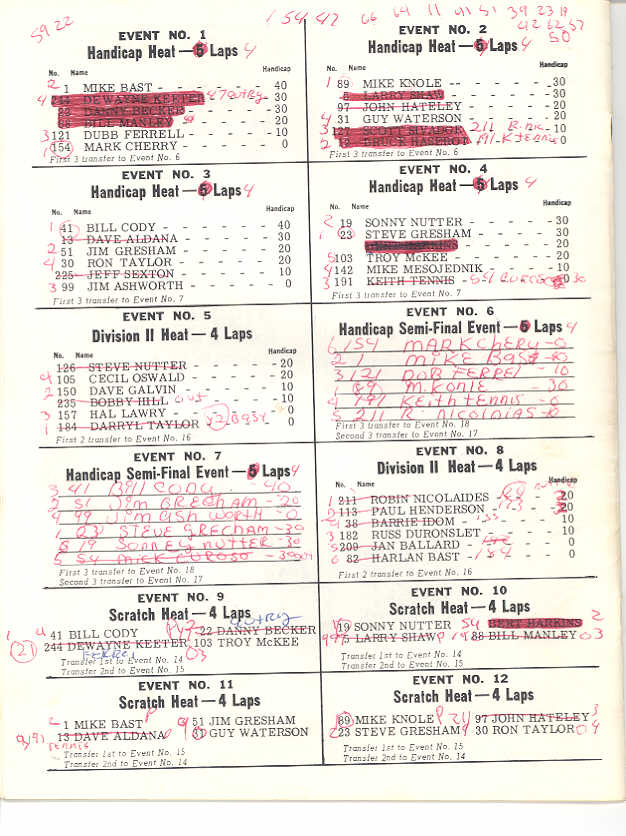 59 22
154 47 66 64 11 91 51 39 23 19
42 62 57
50
EVENT NO. 1
Handicap Heat — 5 Laps 4
No. Name Handicap
2 1 MIKE BAST - - - - - 40
4 244 DEWAYNE KEETER 30
22 DANNY BECKER - 30
88 BILL MANLEY - - - - 20
3 121 DUBB FERRELL - - - - 10
1 154 MARK CHERRY - - - - 0
First 3 transfer to Event No. 6
EVENT NO. 2
Handicap Heat — 5 Laps 4
No. Name Handicap
1 89 MIKE KNOLE - - - - - 30
5 LARRY SHAW - - - - - 30
97 JOHN HATELEY - - - - 20
4 31 GUY WATERSON - - - - 20
3 127 SCOTT SIVADGE 211 R. NIC 10
2 12 BRUCK HASEROT 191 K TENNIS 0
First 3 transfer to Event No. 6
EVENT NO. 3
Handicap Heat — 5 Laps 4
No. Name Handicap
1 41 BILL CODY - - - - - - 40
13 DAVE ALDANA - - - - - 30
2 51 JIM GRESHAM - - - - - 20
4 30 RON TAYLOR - - - - - 20
225 JEFF SEXTON - - - - - 10
3 99 JIM ASHWORTH - - - - 0
First 3 transfer to Event No. 7
EVENT NO. 4
Handicap Heat — 5 Laps 4
No. Name Handicap
2 19 SONNY NUTTER - - - - - 30
1 23 STEVE GRESHAM - - - - 30
HARKINS - - - - 20
5 103 TROY McKEE - - - - - 20
4 142 MIKE MESOJEDNIK - - - - 10
3 191 KEITH TENNIS - 54 CUROSO 0 30
First 3 transfer to Event No. 7
EVENT NO. 5
Division II Heat — 4 Laps
No. Name Handicap
126 STEVE NUTTER - - - - 20
4 105 CECIL OSWALD - - - - 20
2 150 DAVE GALVIN - - - - 10
235 BOBBY HILL out - - - 10
3 157 HAL LAWRY - - - - 0
1 184 DARRYL TAYLOR 0
First 2 transfer to Event No. 16
EVENT NO. 6
Handicap Semi-Final Event — 5 Laps 4
6 154 MARK CHERY - 0
2 1 MIKE BAST
3 121 DOB FERREL - 10
1 89 M. KONLE - 30
4 191 KEITH TENNIS - 0
5 211 R. NICOLDIAS - 0
First 3 transfer to Event No. 18
Second 3 transfer to Event No. 17
EVENT NO. 7
Handicap Semi-Final Event — 5 Laps 4
3 41 BILL CODY - 40
2 51 JIM GRECHAM - 20
4 99 JIM ASH WORTH - 0
1 23 STEVE GRECHAM - 30
6 19 SONNEY NUTTER - 30
5 54 MICK CUROSO - 30
First 3 transfer to Event No. 18
Second 3 transfer to Event No. 17
EVENT NO. 8
Division II Heat — 4 Laps
No. Name Handicap
1 211 ROBIN NICOLAIDES 20
2 113 PAUL HENDERSON - 113 20
38 BARRIE IDOM - - - 10
3 182 RUSS DURONSLET - - - - 10
5 209 JAN BALLARD - - - 0
6 82 HARLAN BAST - 184 - - 0
First 2 transfer to Event No. 16
EVENT NO. 9
Scratch Heat — 4 Laps
41 BILL CODY 22 DANNY BECKER
244 DEWAYNE KEETER 103 TROY McKEE
Transfer 1st to Event No. 14
Transfer 2nd to Event No. 15
EVENT NO. 10
Scratch Heat — 4 Laps
19 SONNY NUTTER 54 BERT HARKINS 2
5 LARRY SHAW 88 BILL MANLEY 03
Transfer 1st to Event No. 14
Transfer 2nd to Event No. 15
EVENT NO. 11
Scratch Heat — 4 Laps
1 MIKE BAST 51 JIM GRESHAM
13 DAVE ALDANA 31 GUY WATERSON
191 TENNIS
Transfer 1st to Event No. 15
Transfer 2nd to Event No. 14
EVENT NO. 12
Scratch Heat — 4 Laps
89 MIKE KNOLE 97 JOHN HATELEY 3
23 STEVE GRESHAM 30 RON TAYLOR 0 4
Transfer 1st to Event No. 15
Transfer 2nd to Event No. 14